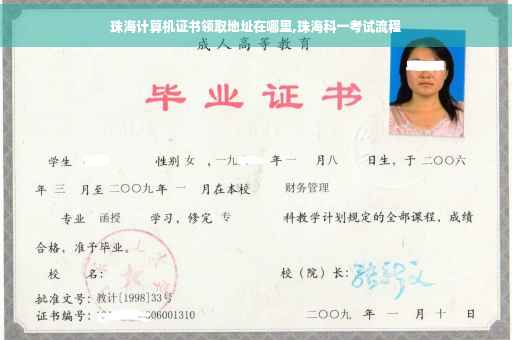 珠海计算机证书领取地址在哪里,珠海科一考试流程
成人高等教育
毕业证书
学生 性别 女 ,一九 年 一 月八 日生，于 二〇〇六
年 三 月至 二〇〇九 年 一 月在本校 财务管理
专业 函授 学习，修完 专 科教学计划规定的全部课程，成绩
合格，准予毕业。
校 名： 校（院）长：
批准文号：教计[1998]33号
证书编号： 06001310 二〇〇九 年 一 月 十 日